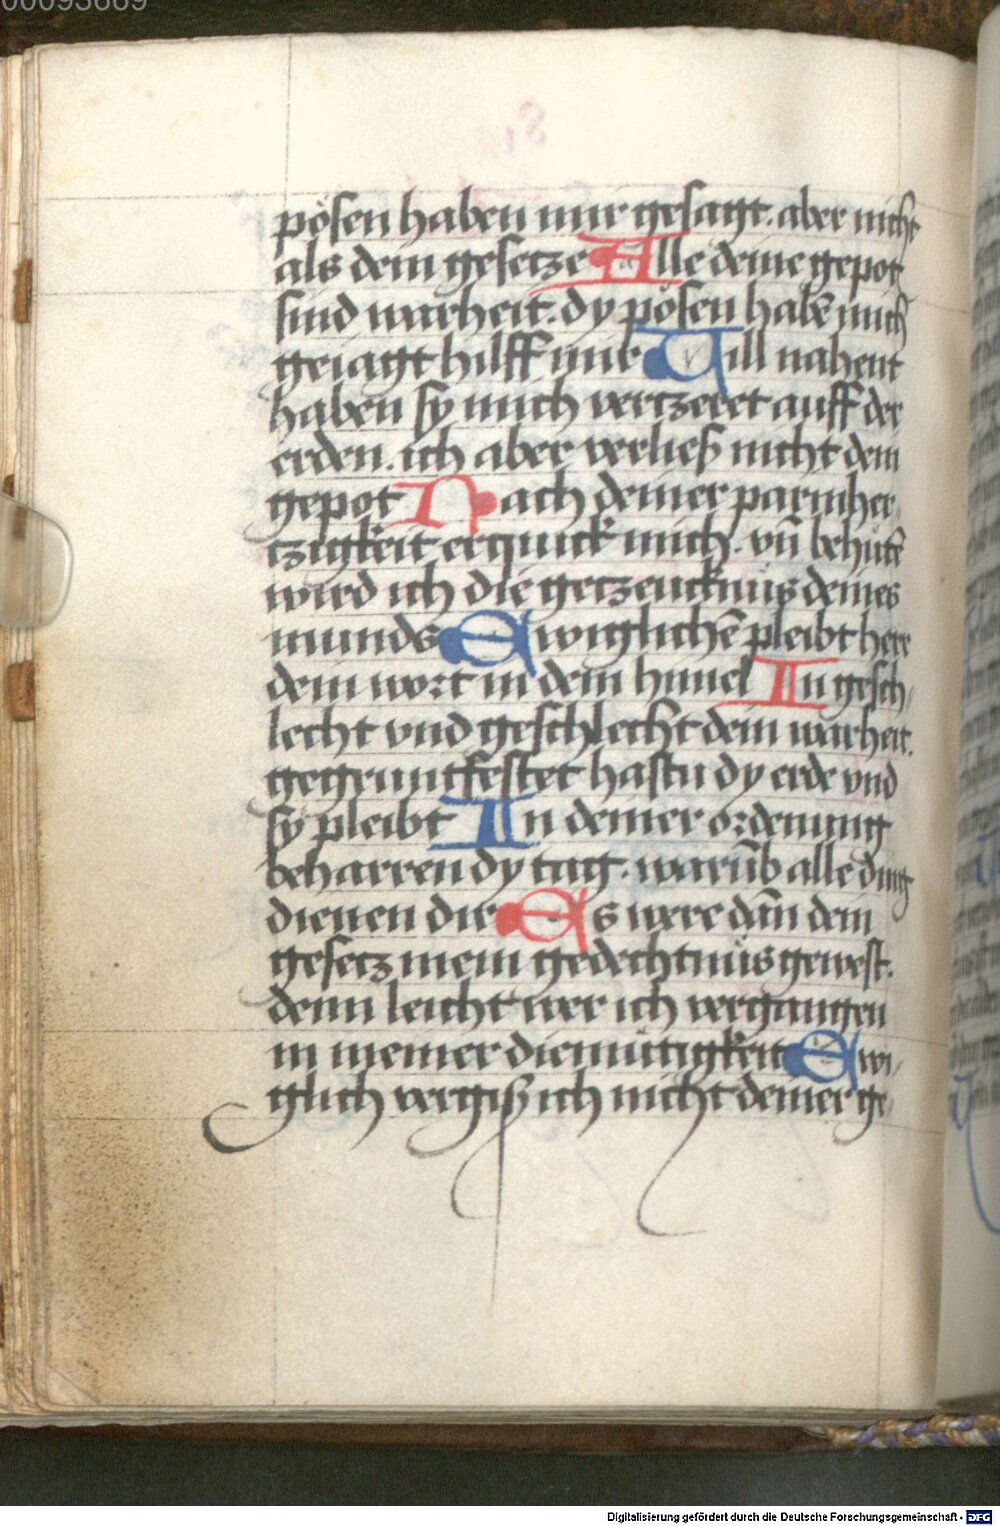 00093669
pösen haben mir gesagt. aber nicht
als dein gesetze Alle deine gepot
sind warheit. dy pösen habē mich
geiagt hilff mir Vill nahent
haben sy mich vertzeret auff der
erden. ich aber verließ nicht dein
gepot Nach deiner parmher-
tzigkeit erquick mich. vn̄ behütē
wird ich die getzeucknüs deines
munds Ewiglichē pleibt herr
dein wort in dem himel In gesch-
lecht vnd geschlecht dein warheit.
gegruntfestet hastu dy erde vnd
sy pleibt In deiner ordenung
beharren dy tag. warūb alle ding
dienen dir Es were dān dein
gesetz mein gedechtnüs gewest.
denn leicht wer ich vergangen
in meiner diemütigkeit Ewi-
glich vergiß ich nicht deiner ge-
Digitalisierung gefördert durch die Deutsche Forschungsgemeinschaft - DFG